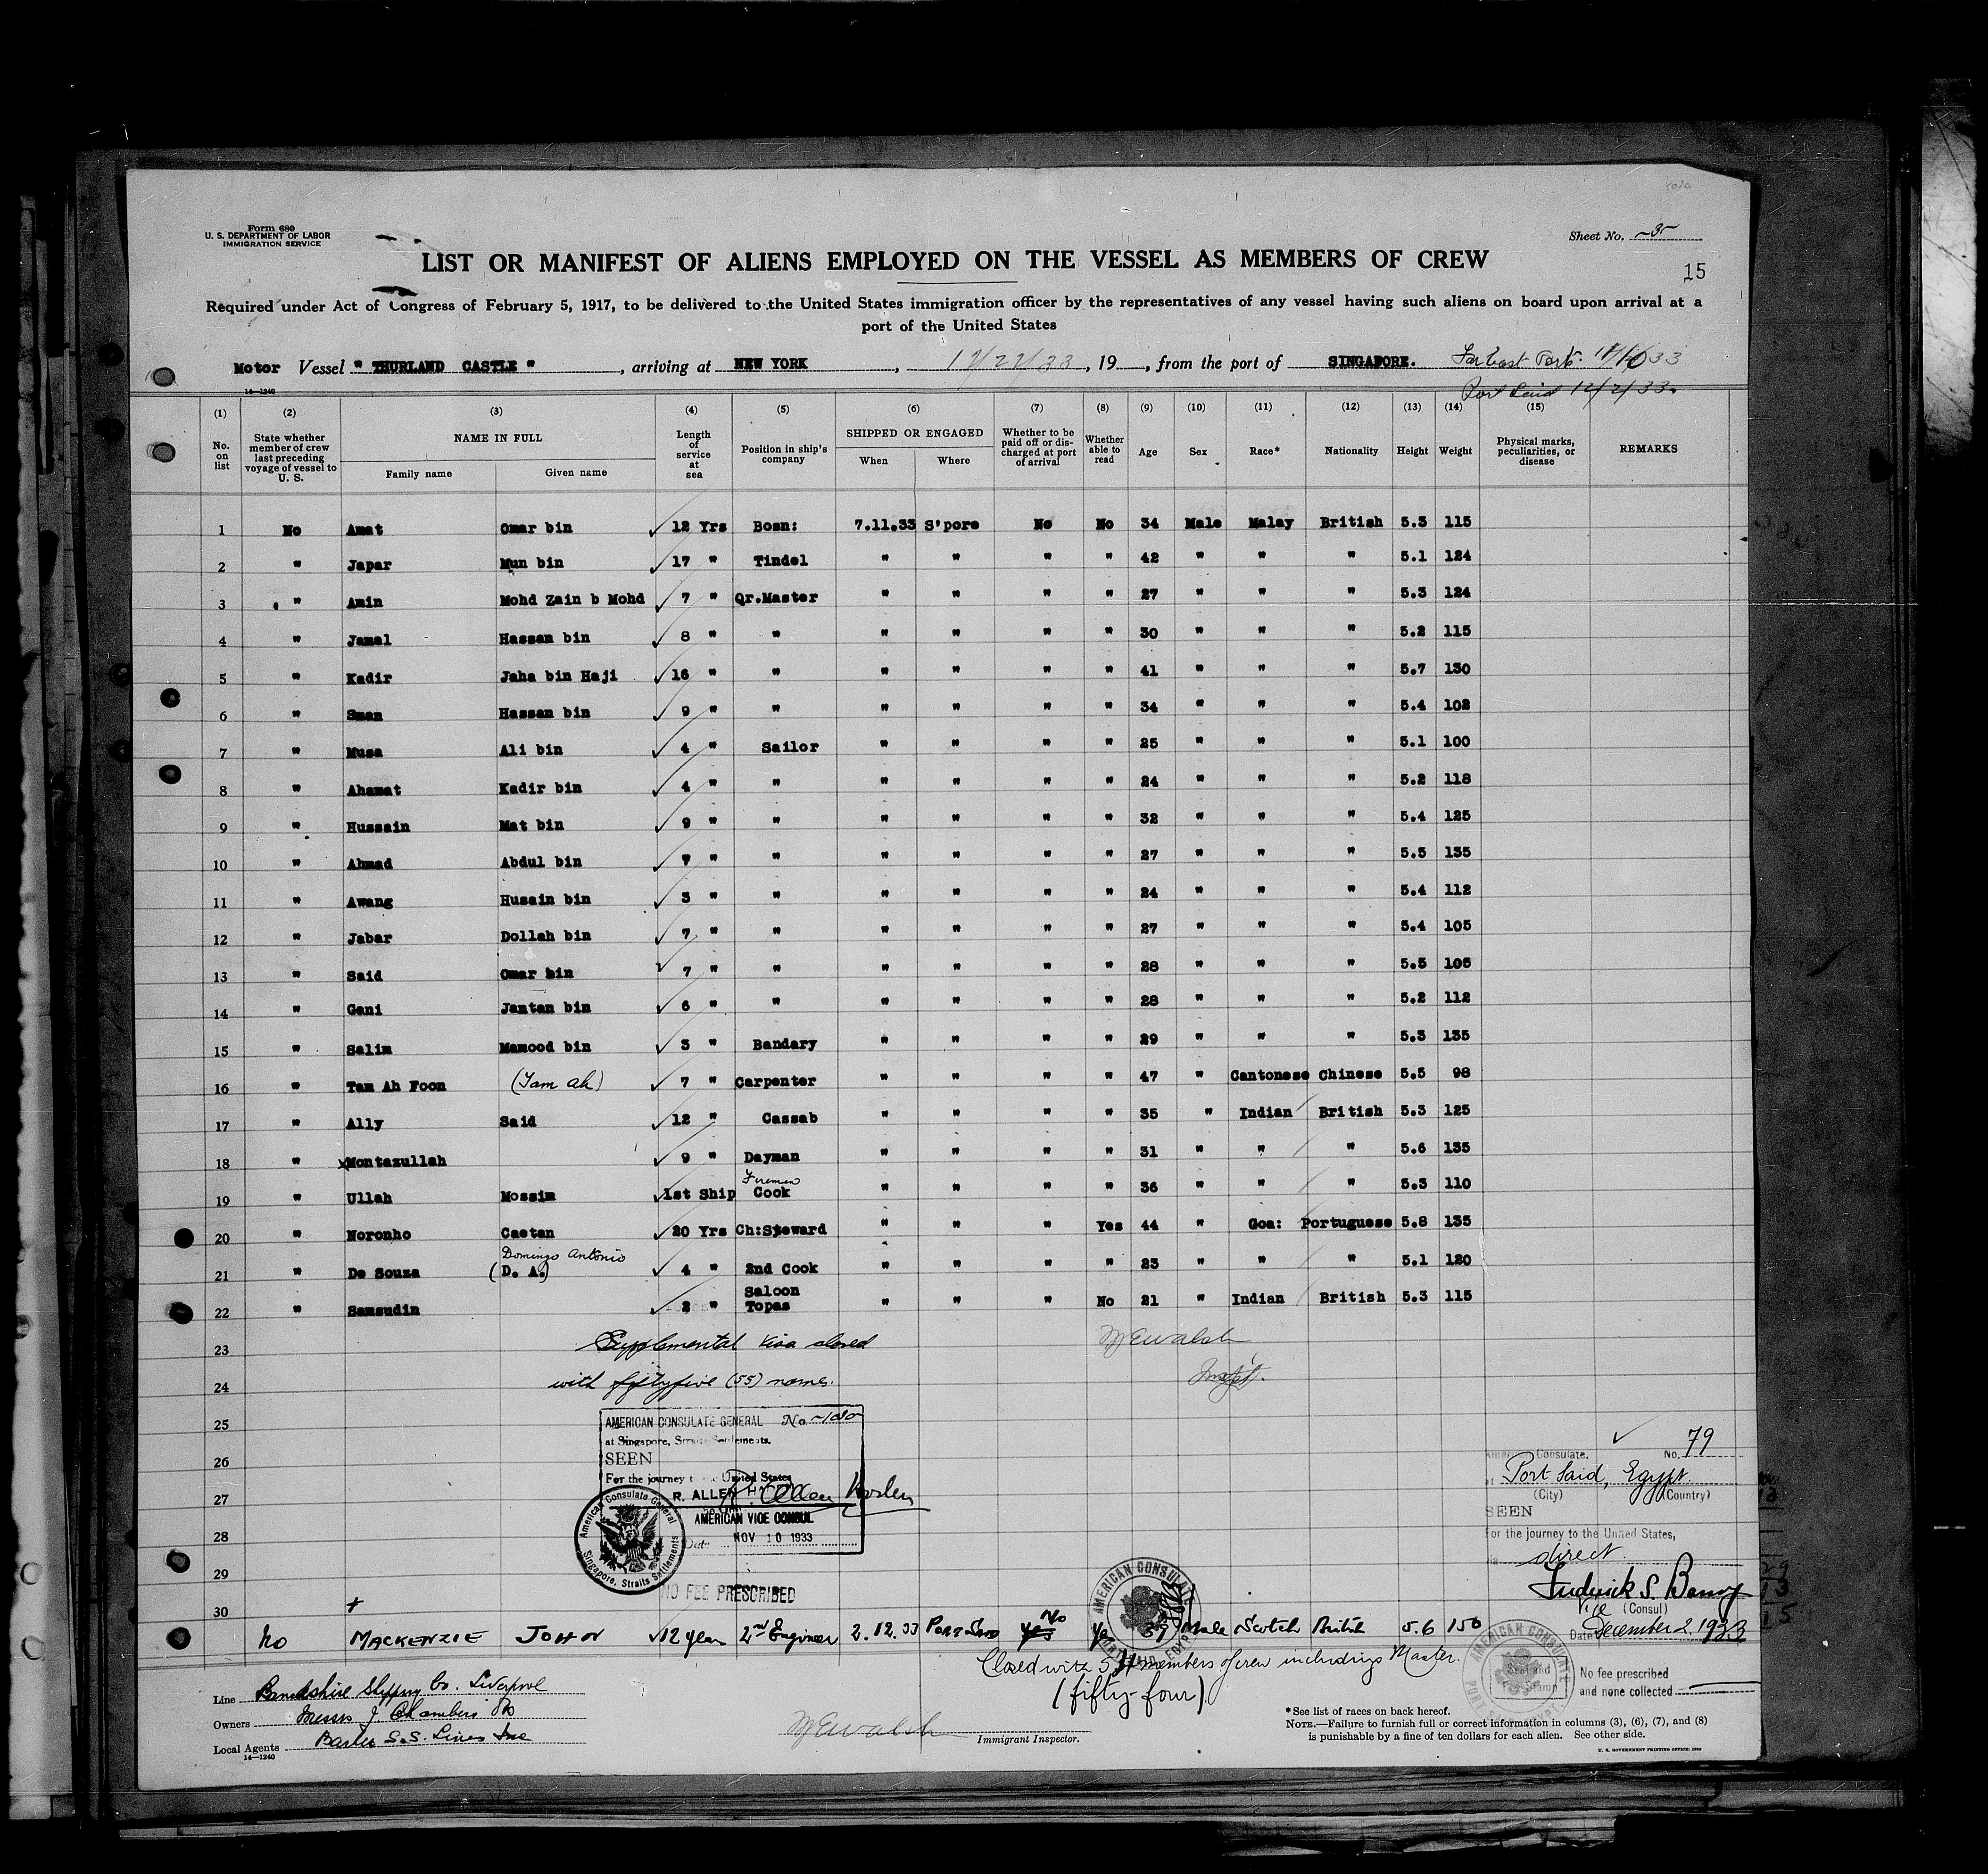 Form 680
U. S. DEPARTMENT OF LABOR
IMMIGRATION SERVICE
Sheet No. -3-
LIST OR MANIFEST OF ALIENS EMPLOYED ON THE VESSEL AS MEMBERS OF CREW
15
Required under Act of Congress of February 5, 1917, to be delivered to the United States immigration officer by the representatives of any vessel having such aliens on board upon arrival at a
port of the United States
Motor Vessel " THURLAND CASTLE " , arriving at NEW YORK , 12/22/33 , 19 , from the port of SINGAPORE.
Port Said 12/2/33.
14—1240
(1) (2) (3) (4) (5) (6) (7) (8) (9) (10) (11) (12) (13) (14) (15)
No. on list State whether member of crew last preceding voyage of vessel to U. S. NAME IN FULL Family name Given name Length of service at sea Position in ship's company SHIPPED OR ENGAGED When Where Whether to be paid off or discharged at port of arrival Whether able to read Age Sex Race* Nationality Height Weight Physical marks, peculiarities, or disease REMARKS
1 No Amat Omar bin 12 Yrs Bosn: 7.11.33 S'pore No No 34 Male Malay British 5.3 115
2 " Japar Mun bin 17 " Tindel " " " " 42 " " " 5.1 124
3 " Amin Mohd Zain b Mohd 7 " Qr.Master " " " " 27 " " " 5.3 124
4 " Jamal Hassan bin 8 " " " " " " 30 " " " 5.2 115
5 " Kadir Jaha bin Haji 16 " " " " " " 41 " " " 5.7 130
6 " Sman Hassan bin 9 " " " " " " 34 " " " 5.4 102
7 " Musa Ali bin 4 " Sailor " " " " 25 " " " 5.1 100
8 " Ahamat Kadir bin 4 " " " " " " 24 " " " 5.2 118
9 " Hussain Mat bin 9 " " " " " " 32 " " " 5.4 125
10 " Ahmad Abdul bin " " " " " " 27 " " " 5.5 135
11 " Awang Husain bin 3 " " " " " " 24 " " " 5.4 112
12 " Jabar Dollah bin 7 " " " " " " 27 " " " 5.4 105
13 " Said Omar bin 7 " " " " " " 28 " " " 5.5 105
14 " Gani Jantan bin 6 " " " " " " 28 " " " 5.2 112
15 " Salim Mamood bin 3 " Bandary " " " " 29 " " " 5.3 135
16 " Tam Ah Foon (Tam ah) 7 " Carpenter " " " " 47 " Cantonese Chinese 5.5 98
17 " Ally Said 12 " Cassab " " " " 35 " Indian British 5.3 125
18 " Montazullah 9 " Dayman " " " " 31 " " " 5.6 135
19 " Ullah Mossim 1st Ship Firemen Cook " " " " 36 " " " 5.3 110
20 " Noronho Caetan 20 Yrs Ch:Steward " " " Yes 44 " Goa: Portuguese 5.8 135
Domingo Antonio
21 " De Souza (D. A.) 4 " 2nd Cook " " " " 23 " " " 5.1 120
22 " Samsudin 2 " Saloon Topas " " " No 21 " Indian British 5.3 115
23 Supplemental visa closed
24 with fiftyfive (55) names.
WEWalsh
Insp't.
25
26
27
28
29
30
AMERICAN CONSULATE GENERAL No. -1080-
at Singapore, Straits Settlements.
SEEN
For the journey to the United States
R. ALLEN
AMERICAN VICE CONSUL
Date NOV 10 1933
American Consulate General Singapore, Straits Settlements
NO FEE PRESCRIBED
American Consulate. No. 79
at Port Said, Egypt.
(City) (Country)
SEEN
For the journey to the United States,
direct.
Vice (Consul)
Date December 2. 1933
AMERICAN CONSULATE PORT SAID, EGYPT
No MACKENZIE JOHN 12 year 2nd Engineer 2.12.33 PORT SAID Yes No Yes 39 Male Scotch British 5.6 150
Closed with 54 members of crew including Master.
(fifty-four)
No fee prescribed
and none collected
Line Lancashire Shipping Co. Liverpool
Owners Messrs J. Chambers & Co
Local Agents Barber S.S. Lines Inc
14—1240
WEWalsh
Immigrant Inspector.
*See list of races on back hereof.
NOTE.—Failure to furnish full or correct information in columns (3), (6), (7), and (8)
is punishable by a fine of ten dollars for each alien. See other side.
U. S. GOVERNMENT PRINTING OFFICE: 1930